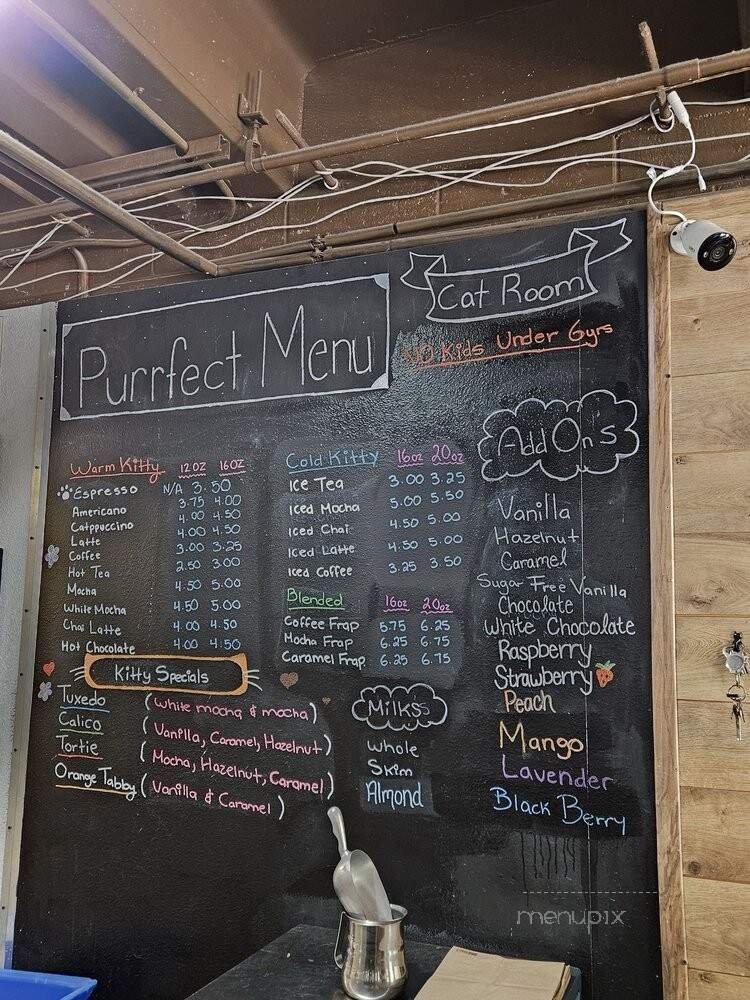 Purrfect Menu
Cat Room
NO Kids Under 6yrs
Warm Kitty 12oz 16oz
Espresso N/A 3.50
Americano 3.75 4.00
Catppuccino 4.00 4.50
Latte 4.00 4.50
Coffee 3.00 3.25
Hot Tea 2.50 3.00
Mocha 4.50 5.00
White Mocha 4.50 5.00
Chai Latte 4.00 4.50
Hot Chocolate 4.00 4.50
Kitty Specials
Tuxedo (White mocha & mocha)
Calico (Vanilla, Caramel, Hazelnut)
Tortie (Mocha, Hazelnut, Caramel)
Orange Tabby (Vanilla & Caramel)
Cold Kitty 16oz 20oz
Ice Tea 3.00 3.25
Iced Mocha 5.00 5.50
Iced Chai 4.50 5.00
Iced Latte 4.50 5.00
Iced Coffee 3.25 3.50
Blended 16oz 20oz
Coffee Frap 5.75 6.25
Mocha Frap 6.25 6.75
Caramel Frap 6.25 6.75
Milkss
Whole
Skim
Almond
Add Ons
Vanilla
Hazelnut
Caramel
Sugar Free Vanilla
Chocolate
White Chocolate
Raspberry
Strawberry
Peach
Mango
Lavender
Black Berry
menupix